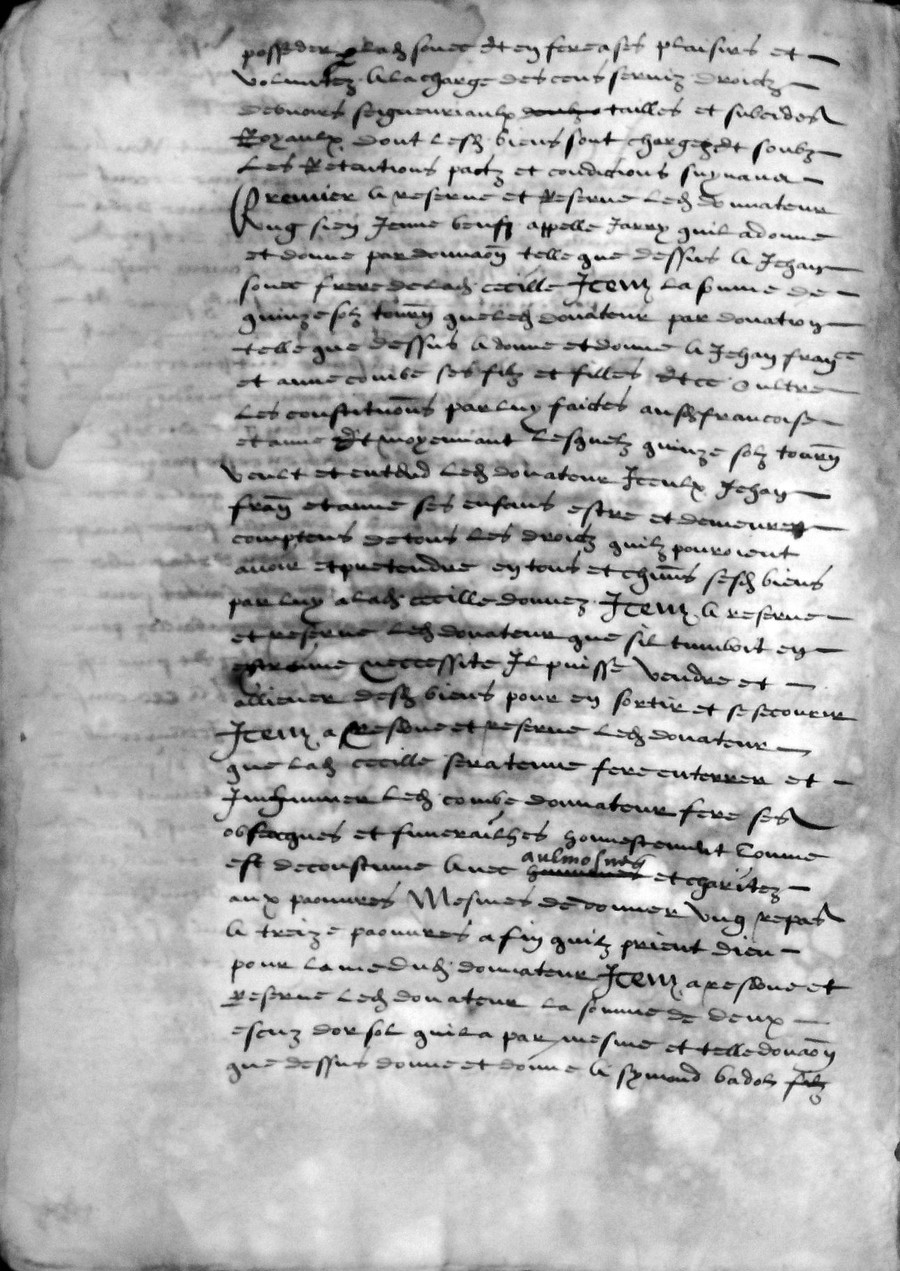 posseder p lad souec et en fere a ses plaisirs et
voluntez A la charge des cens serviz droictz
debvoirs seigneuriaulx tailles et subcides
Royaulx dont lesd biens sont chargez et soubz
Les Retentions pactz et conditions suyvans
Premier A reserve et Reserve led donnateur
Ung sien Jeune beufz appelle Jarry quil a donne
et donne par donnaon telle que dessus A Jehan
souec frere de lad cecille Item La somme de
quinze solz tourn que led donateur par donation
telle que dessus A donne et donne A Jehan france
et anne combe ses filz et filles Et ce oultre
Les constitutions par luy faictes ausd francoise
et anne Et moyennant Lesquelz quinze solz tourn
veult et entend led donateur Iceulx Jehan
fran et anne ses enfans estre et demeurer
comptens de tous les droictz quilz pouroient
avoir et pretendre en tous et chuns sesd biens
par luy a lad cecille donnez Item A reserve
et reserve led donateur que sil tumboit en
extreme neccessite Il puisse vendre et
alliener desd biens pour en sortir et se secourir
Item a Reserve et reserve led donateur
que lad cecille sera tenue fere enterrer et
Inhumer led combe donnateur fere ses
obsecques et funerailhes honnestement Comme
est de coustume Avec aulmosnes et charitez
aux paouvres Mesmes de donner ung repas
A treize paouvres afin quilz prient dieu
pour lame dud donnateur Item a reserve et
Reserve led donateur la somme de deux
escuz dor sol quil a par mesme et telle donaon
que dessus donne et donne A symond badol filz